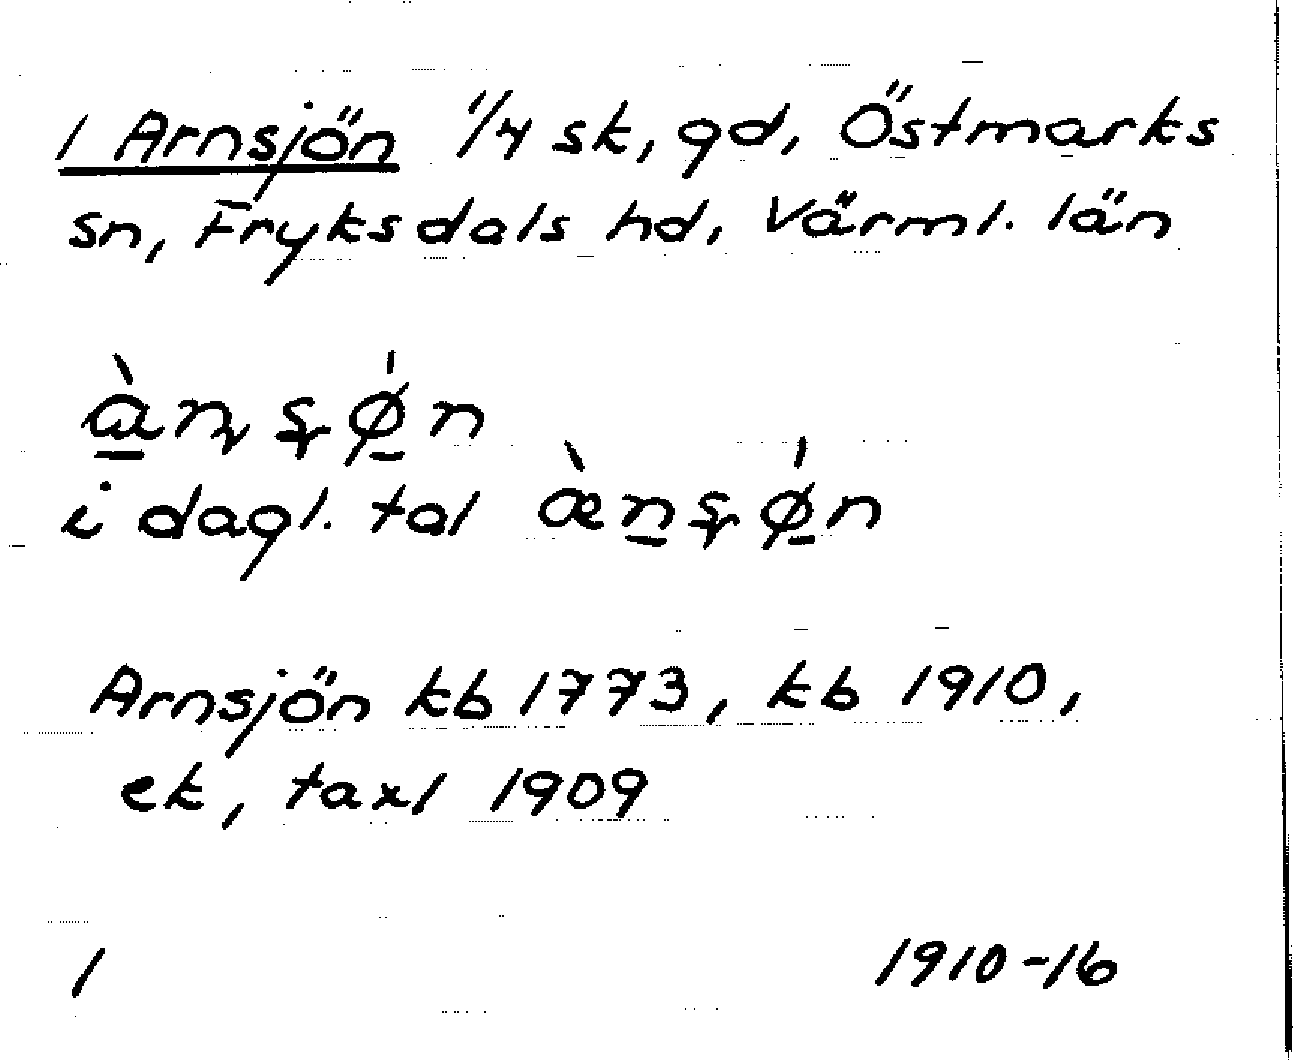 1 Arnsjön 1/4 sk, gd, Östmarks
sn, Fryksdals hd, Värml. län
i dagl. tal
Arnsjön kb 1773, kb 1910,
ek, taxl 1909
1 1910-16